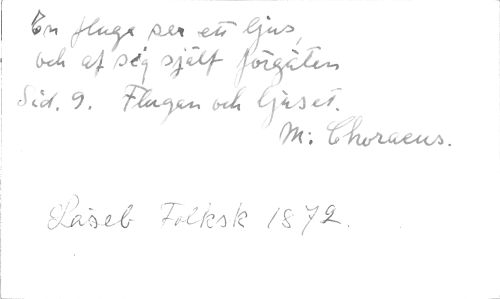 En fluga ser ett ljus,
och af sig själf förgäten
Sid. 9. Flugan och ljuset.
M: Choraeus.
Läseb Folksk 1872.